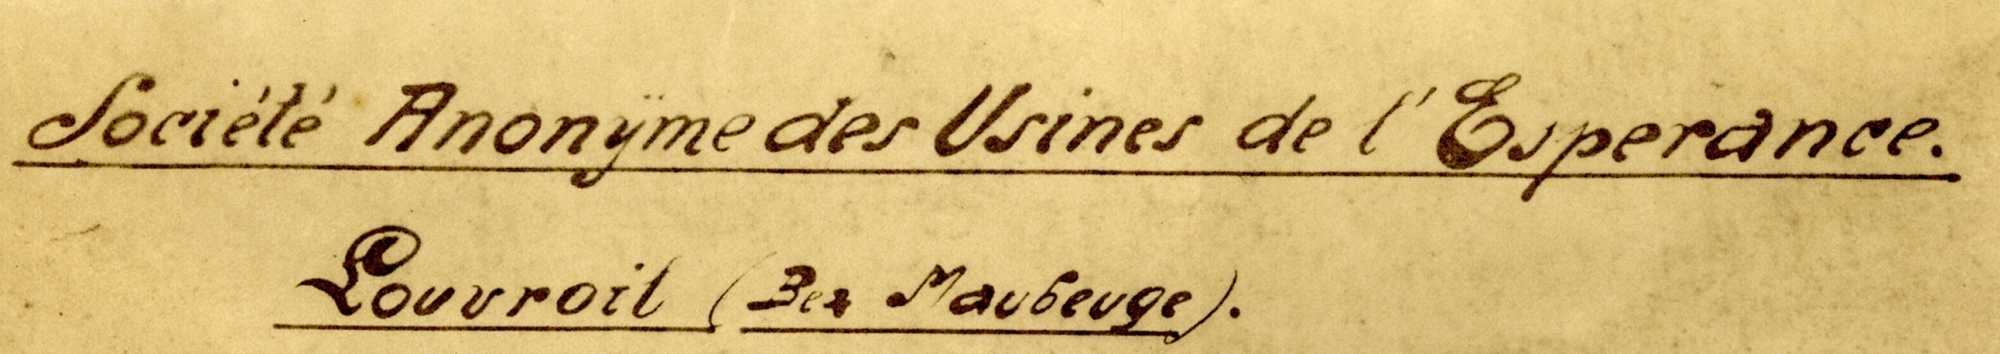 Société Anonÿme des Usines de l'Esperance.
Louvroil (Bei Maubeuge).